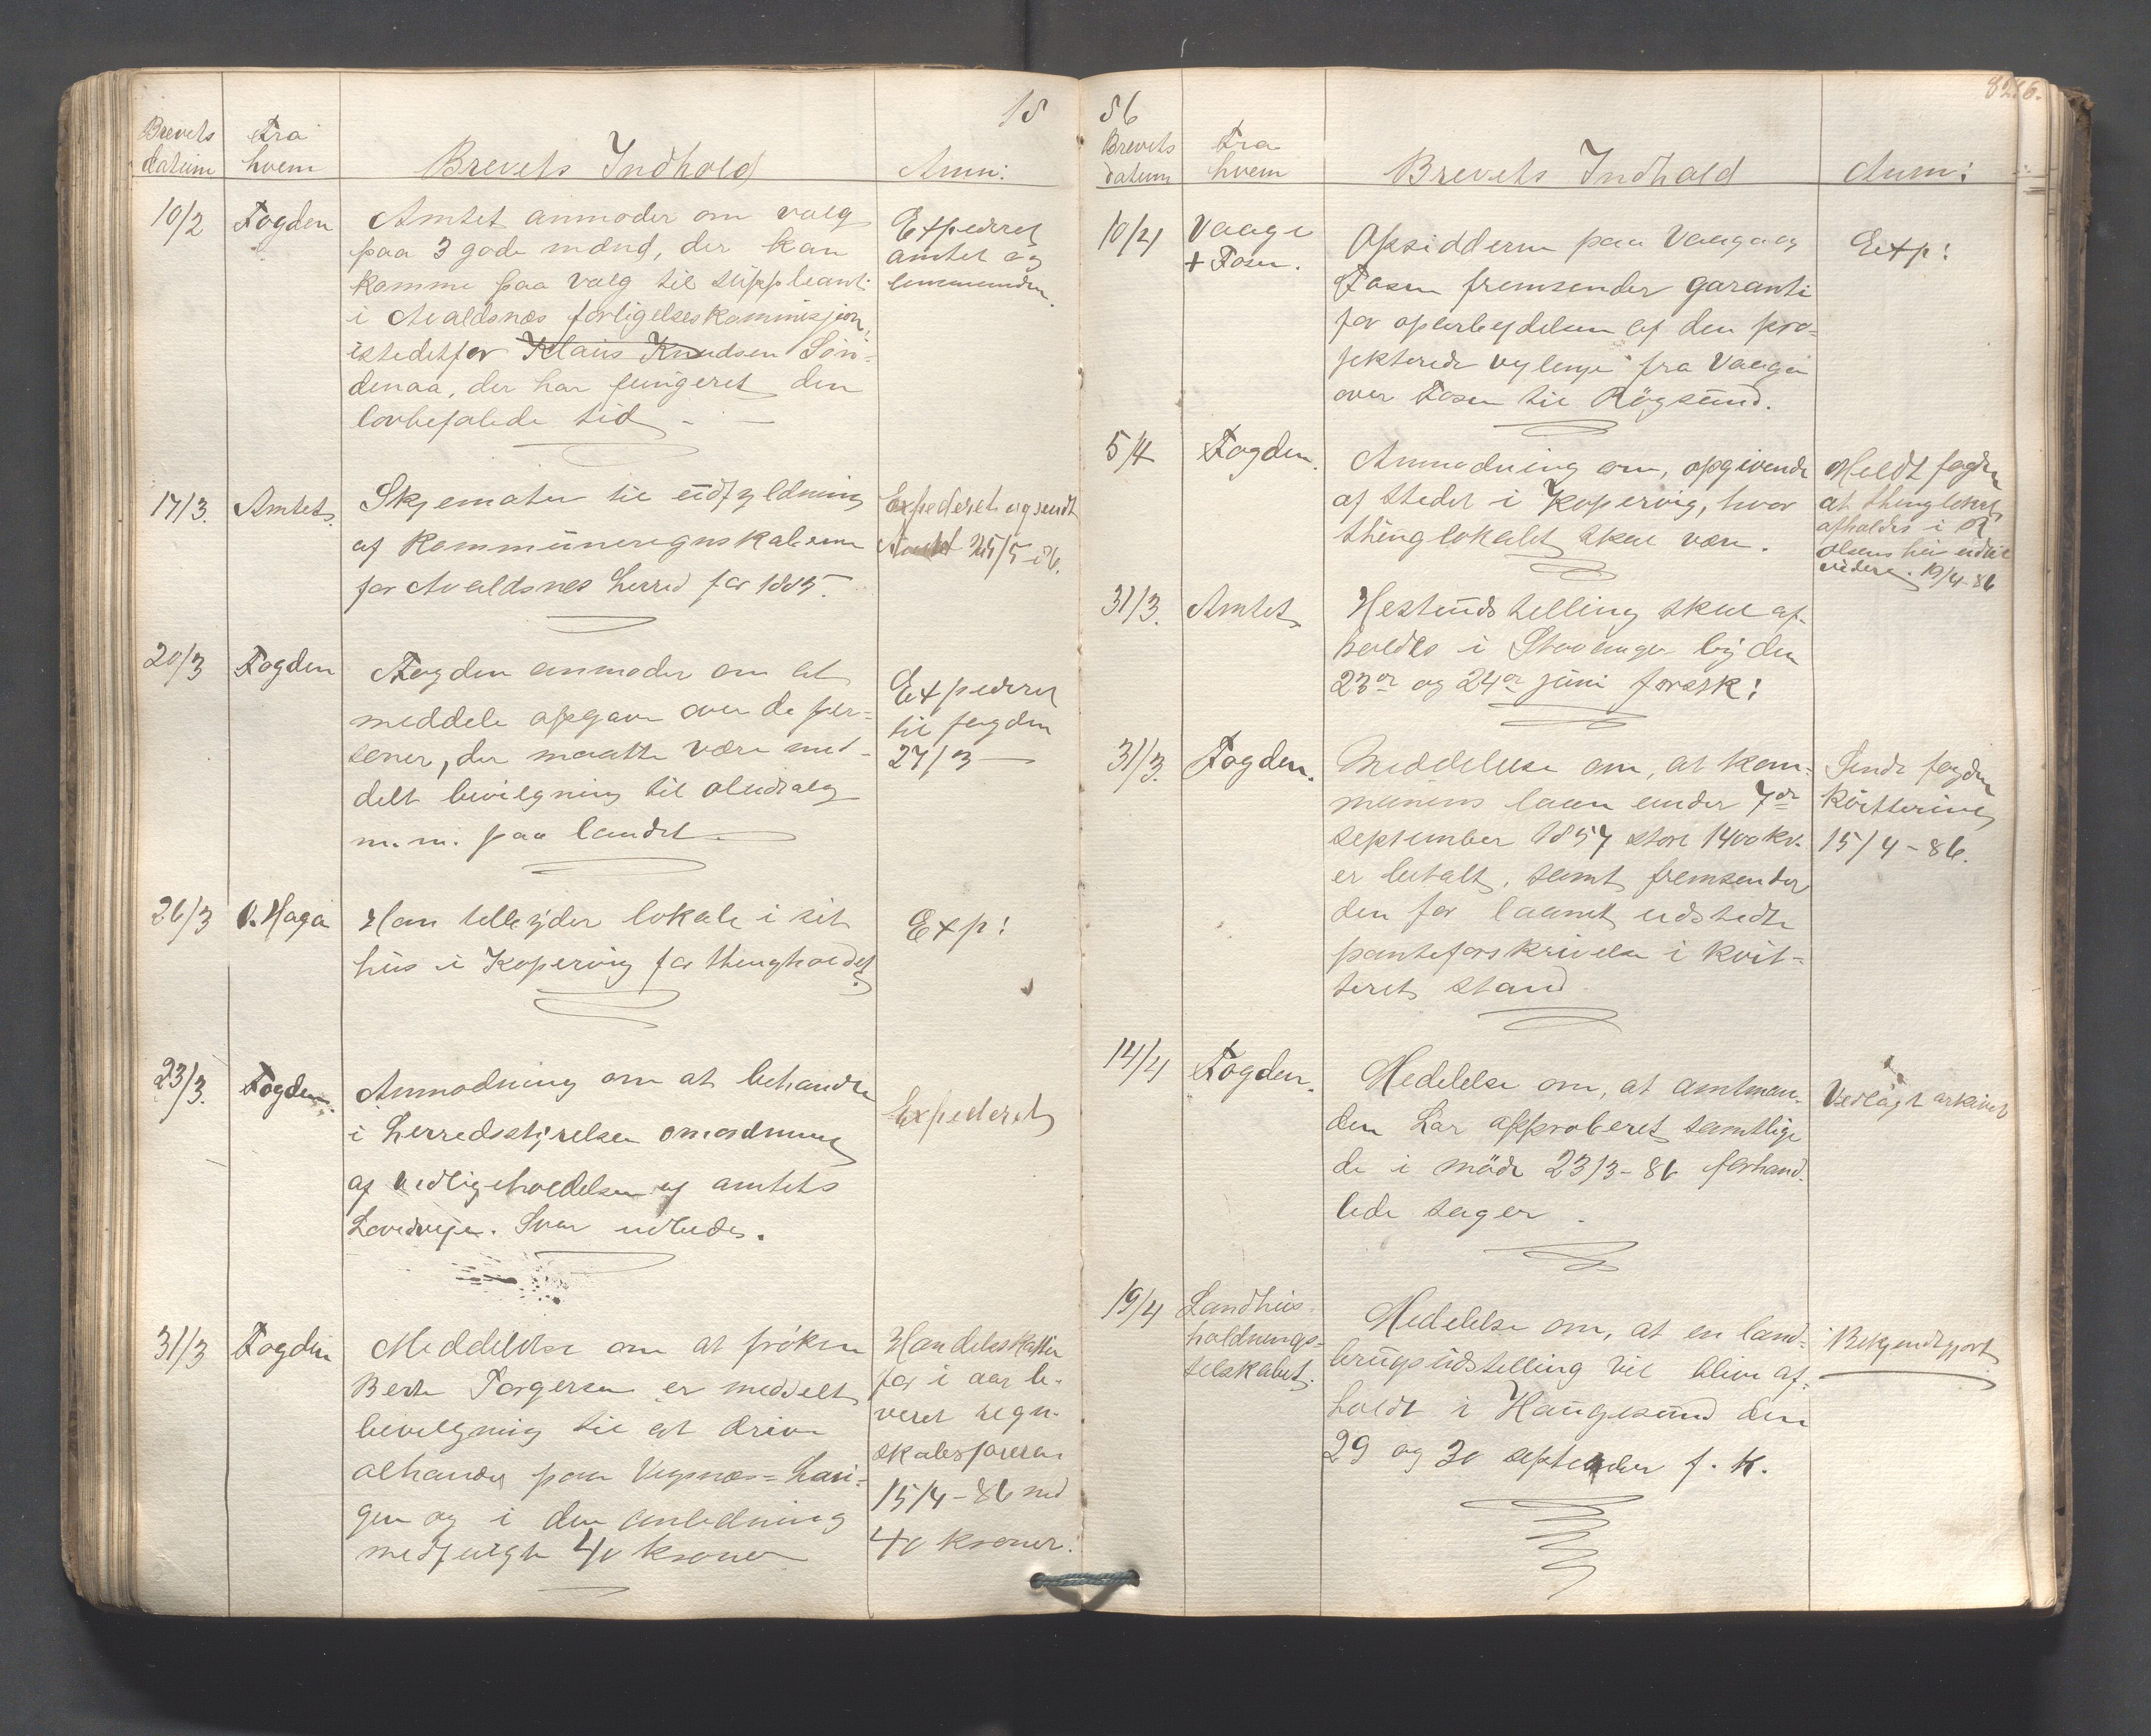 18
Brevets datum
Fra hvem
Brevets Indhold
Anm:
10/2
Fogden
Amtet anmoder om valg
paa 3 gode mænd, der kan
komme paa valg til suppleant
i Avaldsnæs forligelseskommisjon,
istedetfor Klaus Knudsen Sön-
denaa, der har fungeret den
lovbefalede tid
Expederet
amtet og
17/3.
Amtet.
Skjemater til udfyldning
af kommuneregnskaberne
for Avaldsnes herred for 1885.
Expederet og sendt
Amtet 25/5-86.
20/3
Fogden
Fogden anmoder om at
meddele opgave over de per-
soner, der maatte være med-
delt bevilgning til öludsalg
m.m. paa landet
Expederet
til fogden
27/3
26/3
O. Haga
Han tilbyder lokale i sit
hus i Kopervig for thingholdet
Exp!
23/3.
Fogden.
Anmodning om at behandle
i herredsstyrelsen omordning
af vedligeholdelsen af amtets
hovedveje. Svar udbedes.
Expederet
31/3
Fogden
Meddelelse om at fröken
Berte Torgersen er meddelt
bevilgning til at drive
ölhandel paa Vigsnæs-havi-
gen og i den anledning
medfulgte 40 kroner
Handelsskatten
for i aar le-
veret regn-
skabsföreren
15/4-86 med
40 kroner.
86
82 86.
Brevets datum
Fra hvem
Brevets Indhold
Anm:
10/4
Vaage
+ Fosen.
Opsidderne paa Vaage og
Fosen fremsender garanti
for oparbeidelsen af den pro-
jekterede veylenje fra Vaage
over Fosen til Högsund.
Exp!
5/4
Fogden.
Anmodning om, opgivende
af stedet i Kopervig, hvor
thinglokalet skal være.
Meldt fogden
at thinglokal
afholdes i
olsens hus indtil
videre. 19/4-86
31/3.
Amtet
Hestudstelling skal af-
holdes i Stavanger by den
23de og 24de juni förstk:
31/3.
Fogden.
Meddelelse om, at kom-
munens laan under 7de
september 1857 stort 1400 kr.
er betalt, samt fremsender
den for laanet udstedte
panteforskrivelse i kvit-
teret stand
Sendt fogden
kvittering
15/4-86.
14/4
Fogden.
Medelelse om, at amtman-
den har approberet samtlige
de i möde 23/3-86 forhand-
lede sager.
Vedlagt arkivet
19/4
Landhus-
holdnings-
selskabet.
Medelelse om, at en land-
brugsudstelling vil blive af-
holdt i Haugesund den
29 og 30 september f. k.
Bekjendtgjort